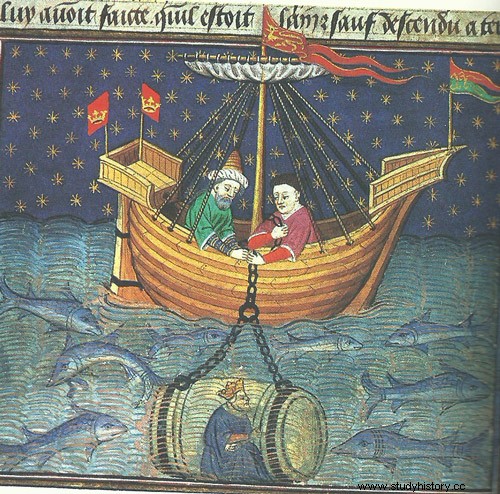 luy auoit faicte quil estoit sain & sauf descendu a ter
www.studyhistory.cc